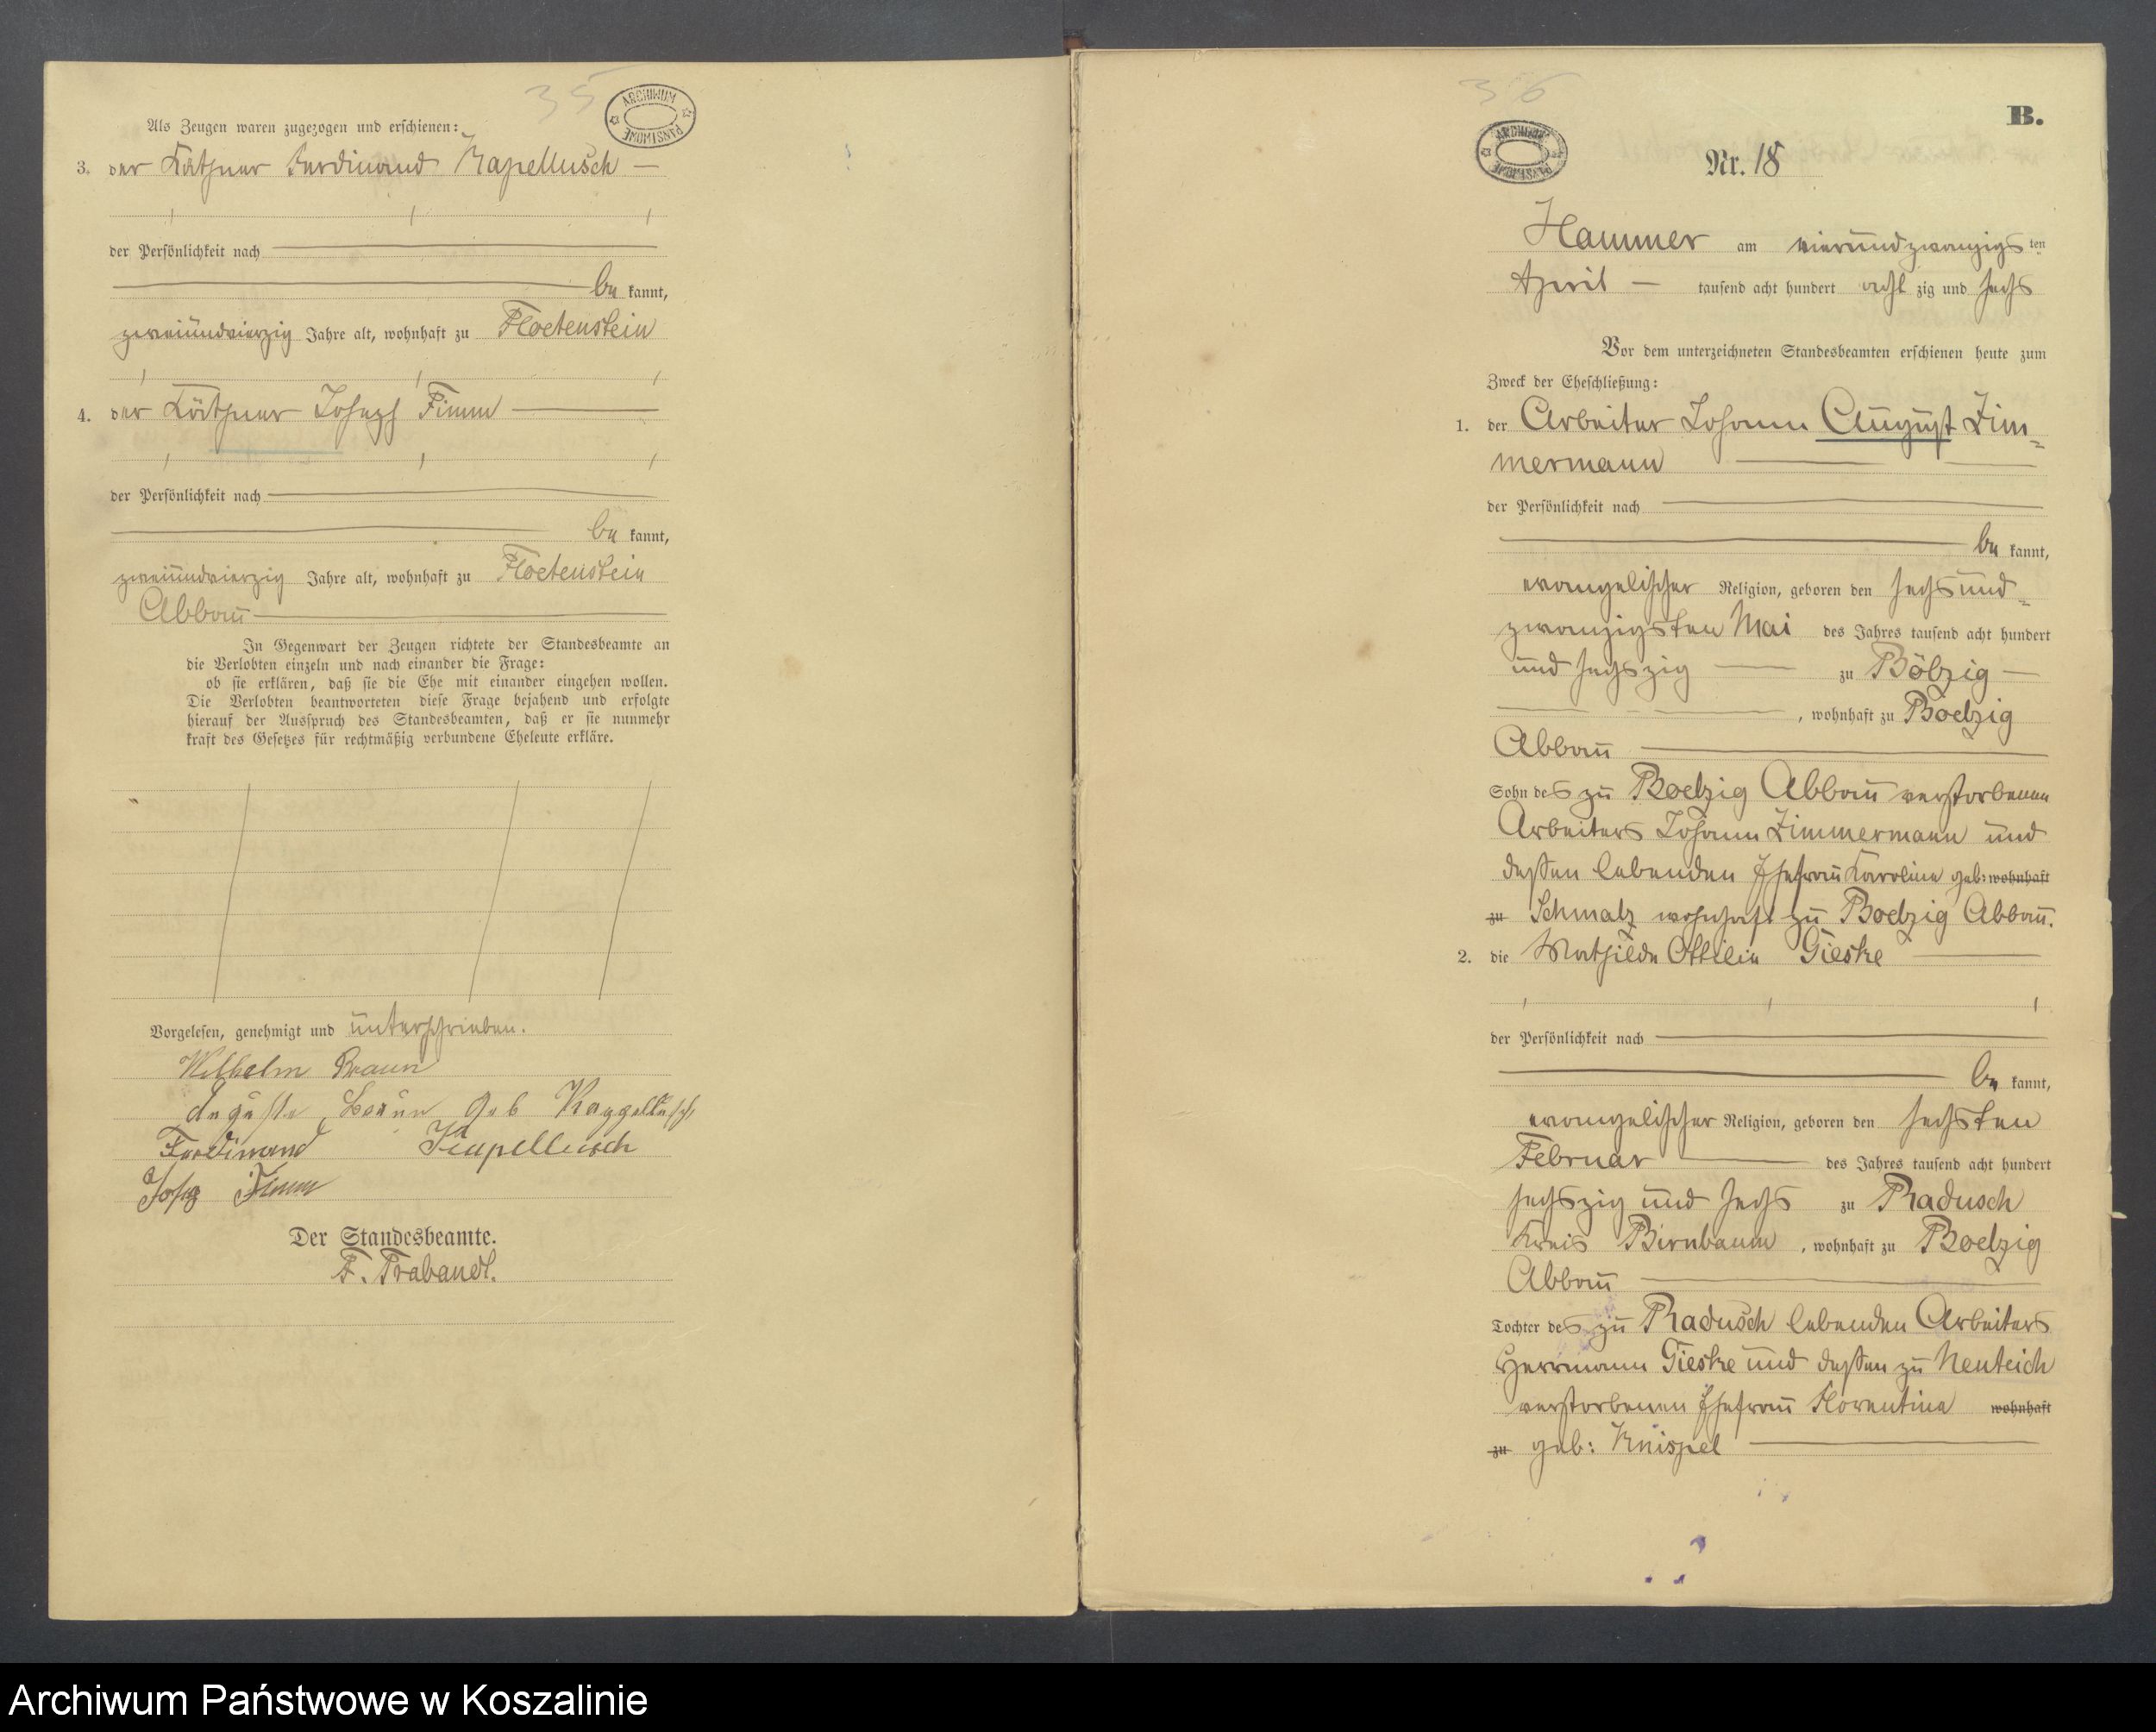 35
ARCHIWUM PAŃSTWOWE
Als Zeugen waren zugezogen und erschienen:
3. der Käthner Ferdinand Kapellusch —
der Persönlichkeit nach
be kannt,
zweiundvierzig Jahre alt, wohnhaft zu Floetenstein
4. der Käthner Joseph Timm
der Persönlichkeit nach
be kannt,
zweiundvierzig Jahre alt, wohnhaft zu Floetenstein
Abbau
In Gegenwart der Zeugen richtete der Standesbeamte an
die Verlobten einzeln und nach einander die Frage:
ob sie erklären, daß sie die Ehe mit einander eingehen wollen.
Die Verlobten beantworteten diese Frage bejahend und erfolgte
hierauf der Ausspruch des Standesbeamten, daß er sie nunmehr
kraft des Gesetzes für rechtmäßig verbundene Eheleute erkläre.
Vorgelesen, genehmigt und unterschrieben.
Wilhelm Braun
Auguste Braun geb Kappellusch
Ferdinand Kapellusch
Josep Timm
Der Standesbeamte.
F. Trabandt.
36
B.
ARCHIWUM PAŃSTWOWE
Nr. 18
Hammer am vierundzwanzigs ten
April — tausend acht hundert acht zig und sechs
Vor dem unterzeichneten Standesbeamten erschienen heute zum
Zweck der Eheschließung:
1. der Arbeiter Johann August Zim=
mermann
der Persönlichkeit nach
be kannt,
evangelischer Religion, geboren den sechsund=
zwanzigsten Mai des Jahres tausend acht hundert
und sechszig — zu Bölzig —
, wohnhaft zu Boelzig
Abbau
Sohn des zu Boelzig Abbau verstorbenen
Arbeiters Johann Zimmermann und
dessen lebenden Ehefrau Karoline geb: wohnhaft
zu Schmalz wohnhaft zu Boelzig Abbau.
2. die Mathilde Ottilie Gieske
der Persönlichkeit nach
be kannt,
evangelischer Religion, geboren den sechsten
Februar des Jahres tausend acht hundert
sechszig und sechs zu Radusch
Kreis Birnbaum , wohnhaft zu Boelzig
Abbau
Tochter des zu Radusch lebenden Arbeiters
Herrmann Gieske und dessen zu Neuteich
verstorbenen Ehefrau Florentine wohnhaft
zu geb: Knispel
Archiwum Państwowe w Koszalinie